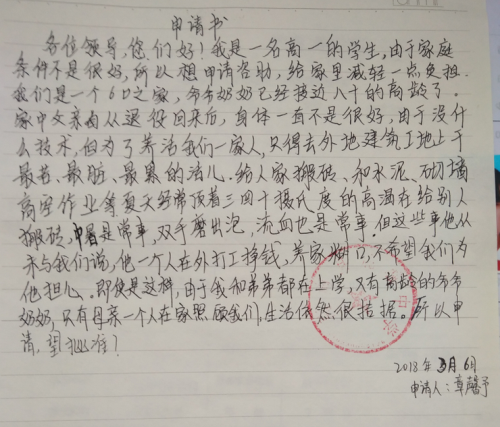 申请书
各位领导,您们好!我是一名高一的学生,由于家庭
条件不是很好,所以想申请资助,给家里减轻一点负担.
我们是一个6口之家,爷爷奶奶已经接近八十的高龄了.
家中父亲自从退役回来后,身体一直不是很好,由于没什
么技术,但为了养活我们一家人,只得去外地建筑工地上干
最苦、最脏、最累的活儿.给人家搬砖、和水泥、砌墙
高空作业等夏天经常顶着三四十摄氏度的高温在给别人
搬砖,中暑是常事,双手磨出泡,流血也是常事.但这些事他从
未与我们说,他一个人在外打工挣钱,养家糊口,不希望我们为
他担心.即使是这样,由于我和弟弟都在上学,又有高龄的爷爷
奶奶,只有母亲一个人在家照顾我们,生活依然很拮据。所以申
请,望批准!
2018年3月6日
申请人:章馨予